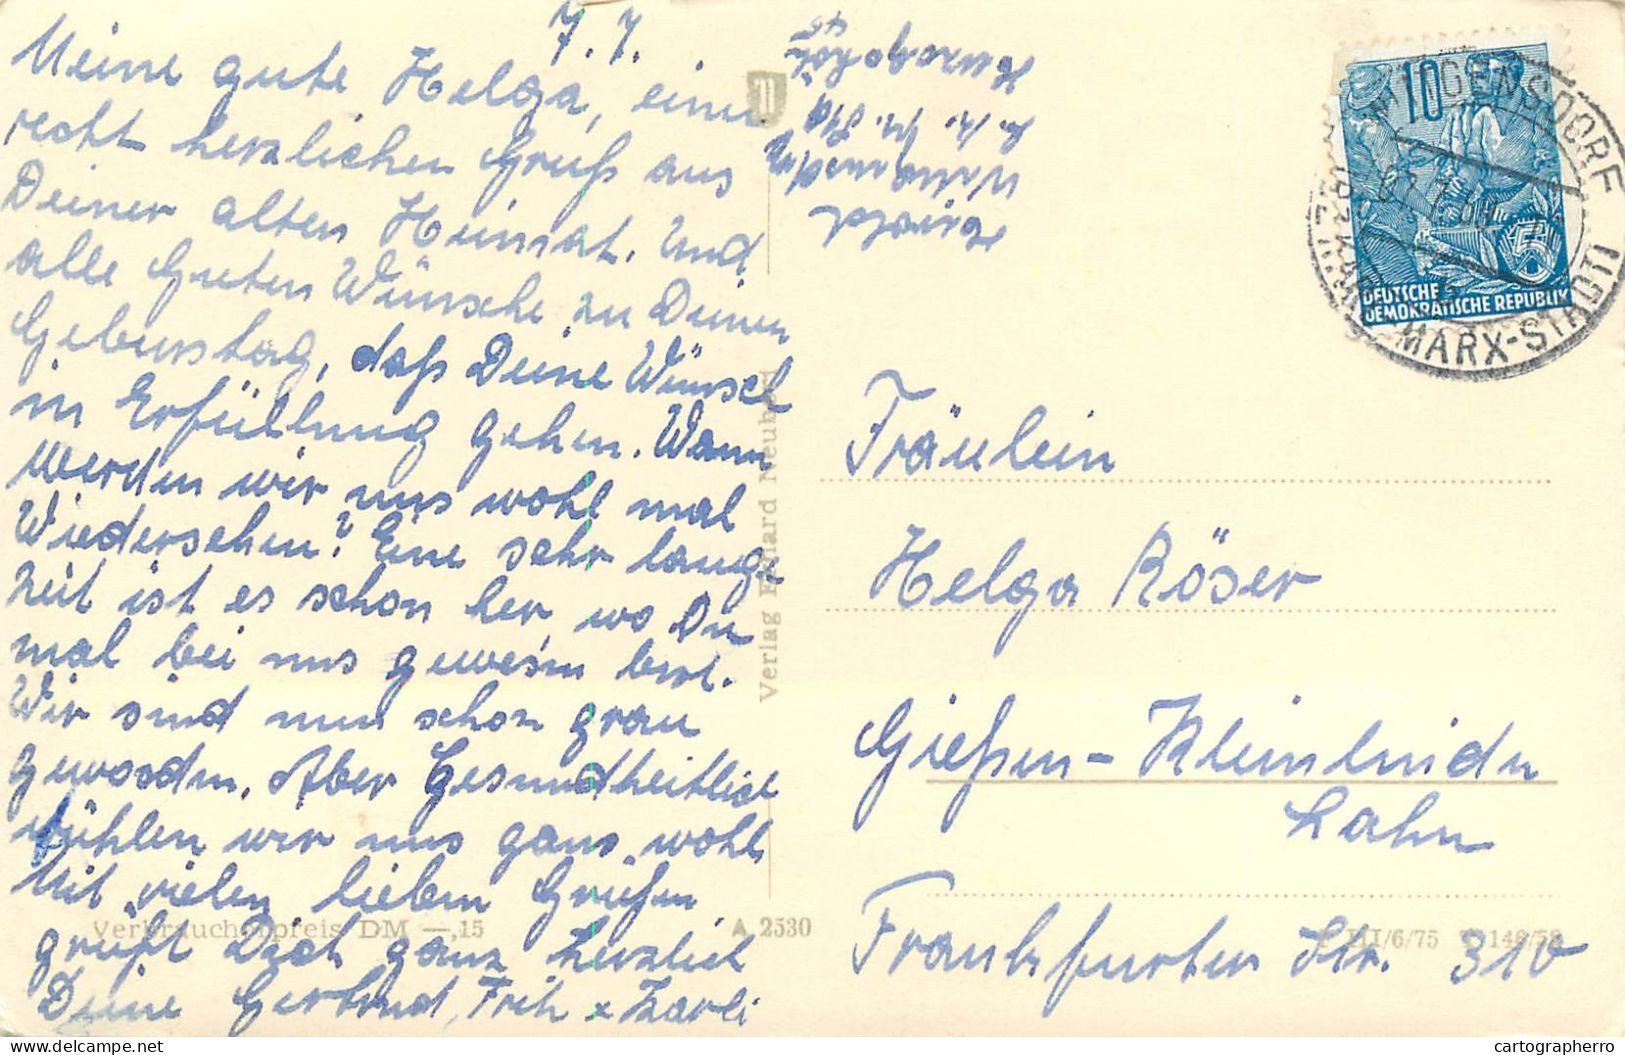 7.7.
Meine gute Helga, einen
recht herzlichen Gruß aus
Deiner alten Heimat. Und
alle Guten Wünsche zu Deinen
Geburstag, daß Deine Wünsch
in Erfüllung gehen. Wann
werden wir uns wohl mal
Wiedersehen? Eine sehr lange
Zeit ist es schon her, wo Du
mal bei uns gewesen bist.
Wir sind nun schon grau
geworden. Aber Gesundheitlich
fühlen wir uns ganz wohl.
Mit vielen lieben Grüßen
grüßt Dich ganz herzlich
Deine Gertrud, Fritz + Karli
Verbraucherpreis DM —,15
A 2530
Verlag Erhard Neubert
10
5
DEUTSCHE
DEMOKRATISCHE REPUBLIK
WINGENSDORF
MARX-STADT
Fräulein
Helga Röser
Gießen - Kleinlinden
Lahn
Frankfurter Str. 310
III/6/75
cartographerro
cartographerro.com